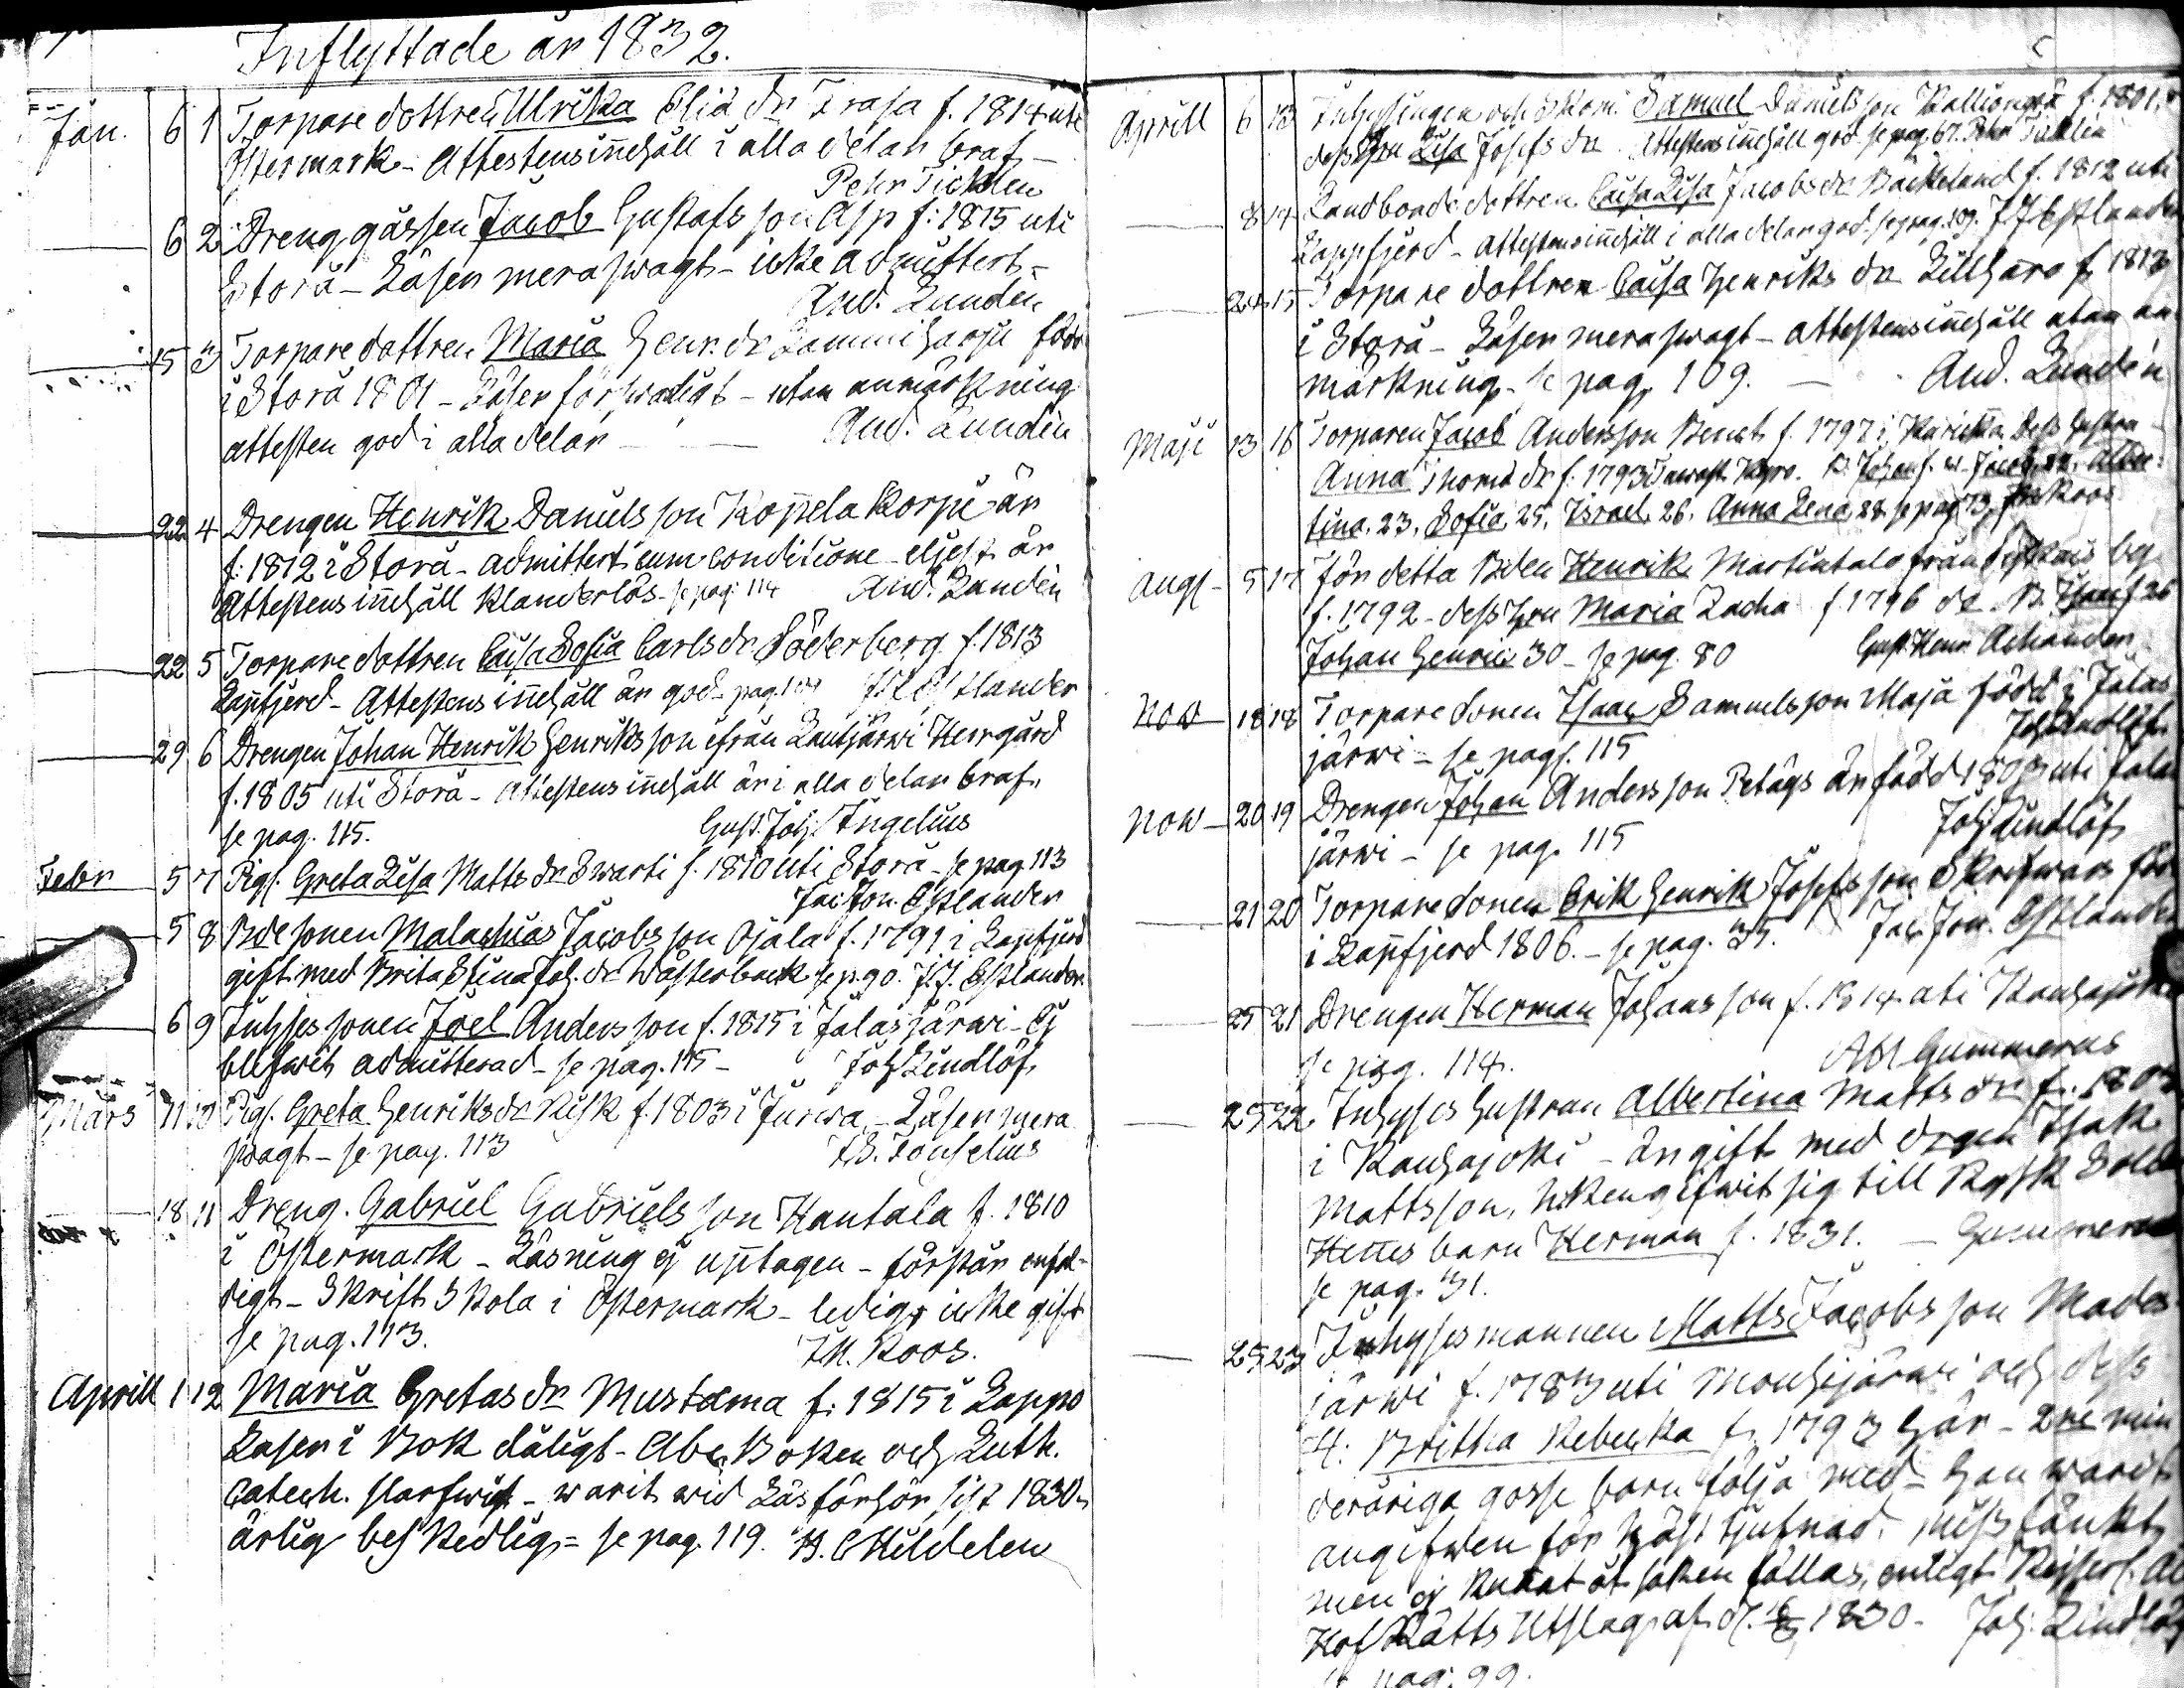 Inflyttade år 1832.
Jan. 6 1 Torpare dottren Ulrika Eliæ dr Trasa f. 1814 uti
Östermark - Attestens inehåll i alla delar braf -
Pehr Ticklén
6 2 Dreng gåssen Jacob Gustafs son Asp f: 1815 uti
Storå - Läsen mera swagt - icke admittert -
And. Lundén
15 3 Torpare dottren Maria Henr. dr Lammiharju född
i Storå 1801 - Läser förswarligt - utan anmärkning
attesten god i alla delar And. Lundén
22 4 Drengen Henrik Daniels son Koppela Korpi är
f: 1812 i Storå - admittert cum conditione - eljest är
Attestens inehåll klanderlös - se pag: 114 And. Lundén
22 5 Torpare dottren Caisa Sofia Carls dr Söderberg f. 1813
Lappfjerd - Attestens inehåll är god - pag. Estlander
29 6 Drengen Johan Henrik Henriks son ifrån Kantjärwi Herrgård
f. 1805 uti Storå - Attestens inehåll är i alla delar braf,
se pag. 115. Gust. Joh. Ingelius
Febr 5 7 Pig. Greta Lisa Matts dr Swarti f. 1810 uti Storå - se pag 113
Jac. Jon. Estlander
5 8 Bde sonen Malachias Jacobs son Ojala f. 1791 i Lappfjerd
gift med Brita Stina Joh. dr Wästerback se p. 90. J. J. Estlander
6 9 Inhyses sonen Joel Anders son f. 1815 i Jalasjärwi - Ej
blifwit admitterad - se pag. 115 - Joh Lindlöf
Mars 11 10 Pig. Greta Henriks dr Risk f. 1803 i Jurwa - Läsen mera
swagt - se pag. 113 Forselius
18 11 Dreng. Gabriel Gabriels son Hautala f. 1810
i Östermark - Läsning ej upptagen - förstår enfal-
digt - Skrift Skola i Östermark - ledig icke gift
se pag. 113. Roos.
Aprill 1 12 Maria Gretas dr Mustama f: 1815 i Lappo
Läser i Bok dåligt - Abc Boken och Luth.
Catech. slarfwigt - warit wid Läsförhör sist 1830
ärlig beskedlig = se pag. 119.
Aprill 6 13 Inhysingen och Skom. Samuel Daniels son Kalliomäki f. 1801.
dess Hru Lisa Josefs dr Attestens inehåll god se pag. 67. Pehr Ticklén
8 14 Landbonde dottren Caisa Lisa Jacobs dr Backeland f. 1812 uti
Lappfjerd - Attestens inehåll i alla delar god. se pag. 109. J. J. Estlander
24 15 Torpare dottren Caisa Henriks dr Lillharo f. 1813
i Storå - Läsen mera swagt - attestens inehåll utan an
märkning - se pag. 109. And. Lundén
Maji 13 16 Torparen Jacob Andersson f. 1797 i Dess Hustru
Anna Thomæ dr f. 1793 Tawast Kyro.
tina. 23. Sofia, 25. Israel. 26. Anna Lena, 28. se pag 73 Roos
Aug 5 17 för detta Bden Henrik Martintalo från
f. 1792 - dess Hru Maria Zacha f. 1796 26
Johan Henric 30 - se pag. 80 Gust. Henr.
Now 18 18 Torpare sonen Isaac Samuels son Maja född i Jalas
järwi - se pag. 115 Joh Lindlöf
Now 20 19 Drengen Johan Anders son Petägs är född 1803 uti Jalas
järwi - se pag. 115 Joh Lindlöf
21 20 Torpare sonen Erik Henrik Josefs son Skrifwars född
i Lappfjerd 1806. - se pag. 35. Jac. Jon. Estlander
25 21 Drengen Herman Johans son f. 1814 uti Kauhajoki
se pag. 114. Gummerus
25 22 Inhyses Hustrun Albertina Matts dr f. 180
i Kauhajoki - är gift med drgen Isak
Mattsson, hwilken gifwit sig till Rysk Soldat
Hennes barn Herman f. 1831. - Gummerus
se pag. 31.
25 23 Inhysesmannen Matts Jacobs son Mades
järwi f. 1783 uti Mouhijärwi och dess
H. Britha Rebecka f. 1793 här - 2ne min
deråriga gosse barn följa med - Han warit
angifwen för häst tjufnad, misstänkt,
men ej kunnat åt saken fällas, enligt Kejserl. Åbo
Hof Rätts Utslag af d. 1830 - Joh. Lindlöf
se pag. 99.